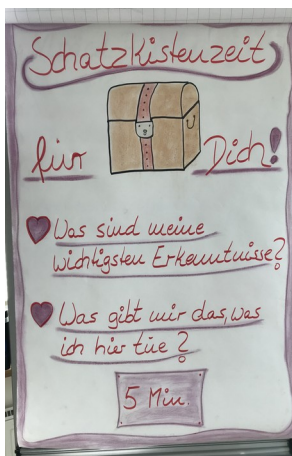 Schatzkistenzeit
für Dich!
Was sind meine
wichtigsten Erkenntnisse?
Was gibt mir das, was
ich hier tue?
5 Min.